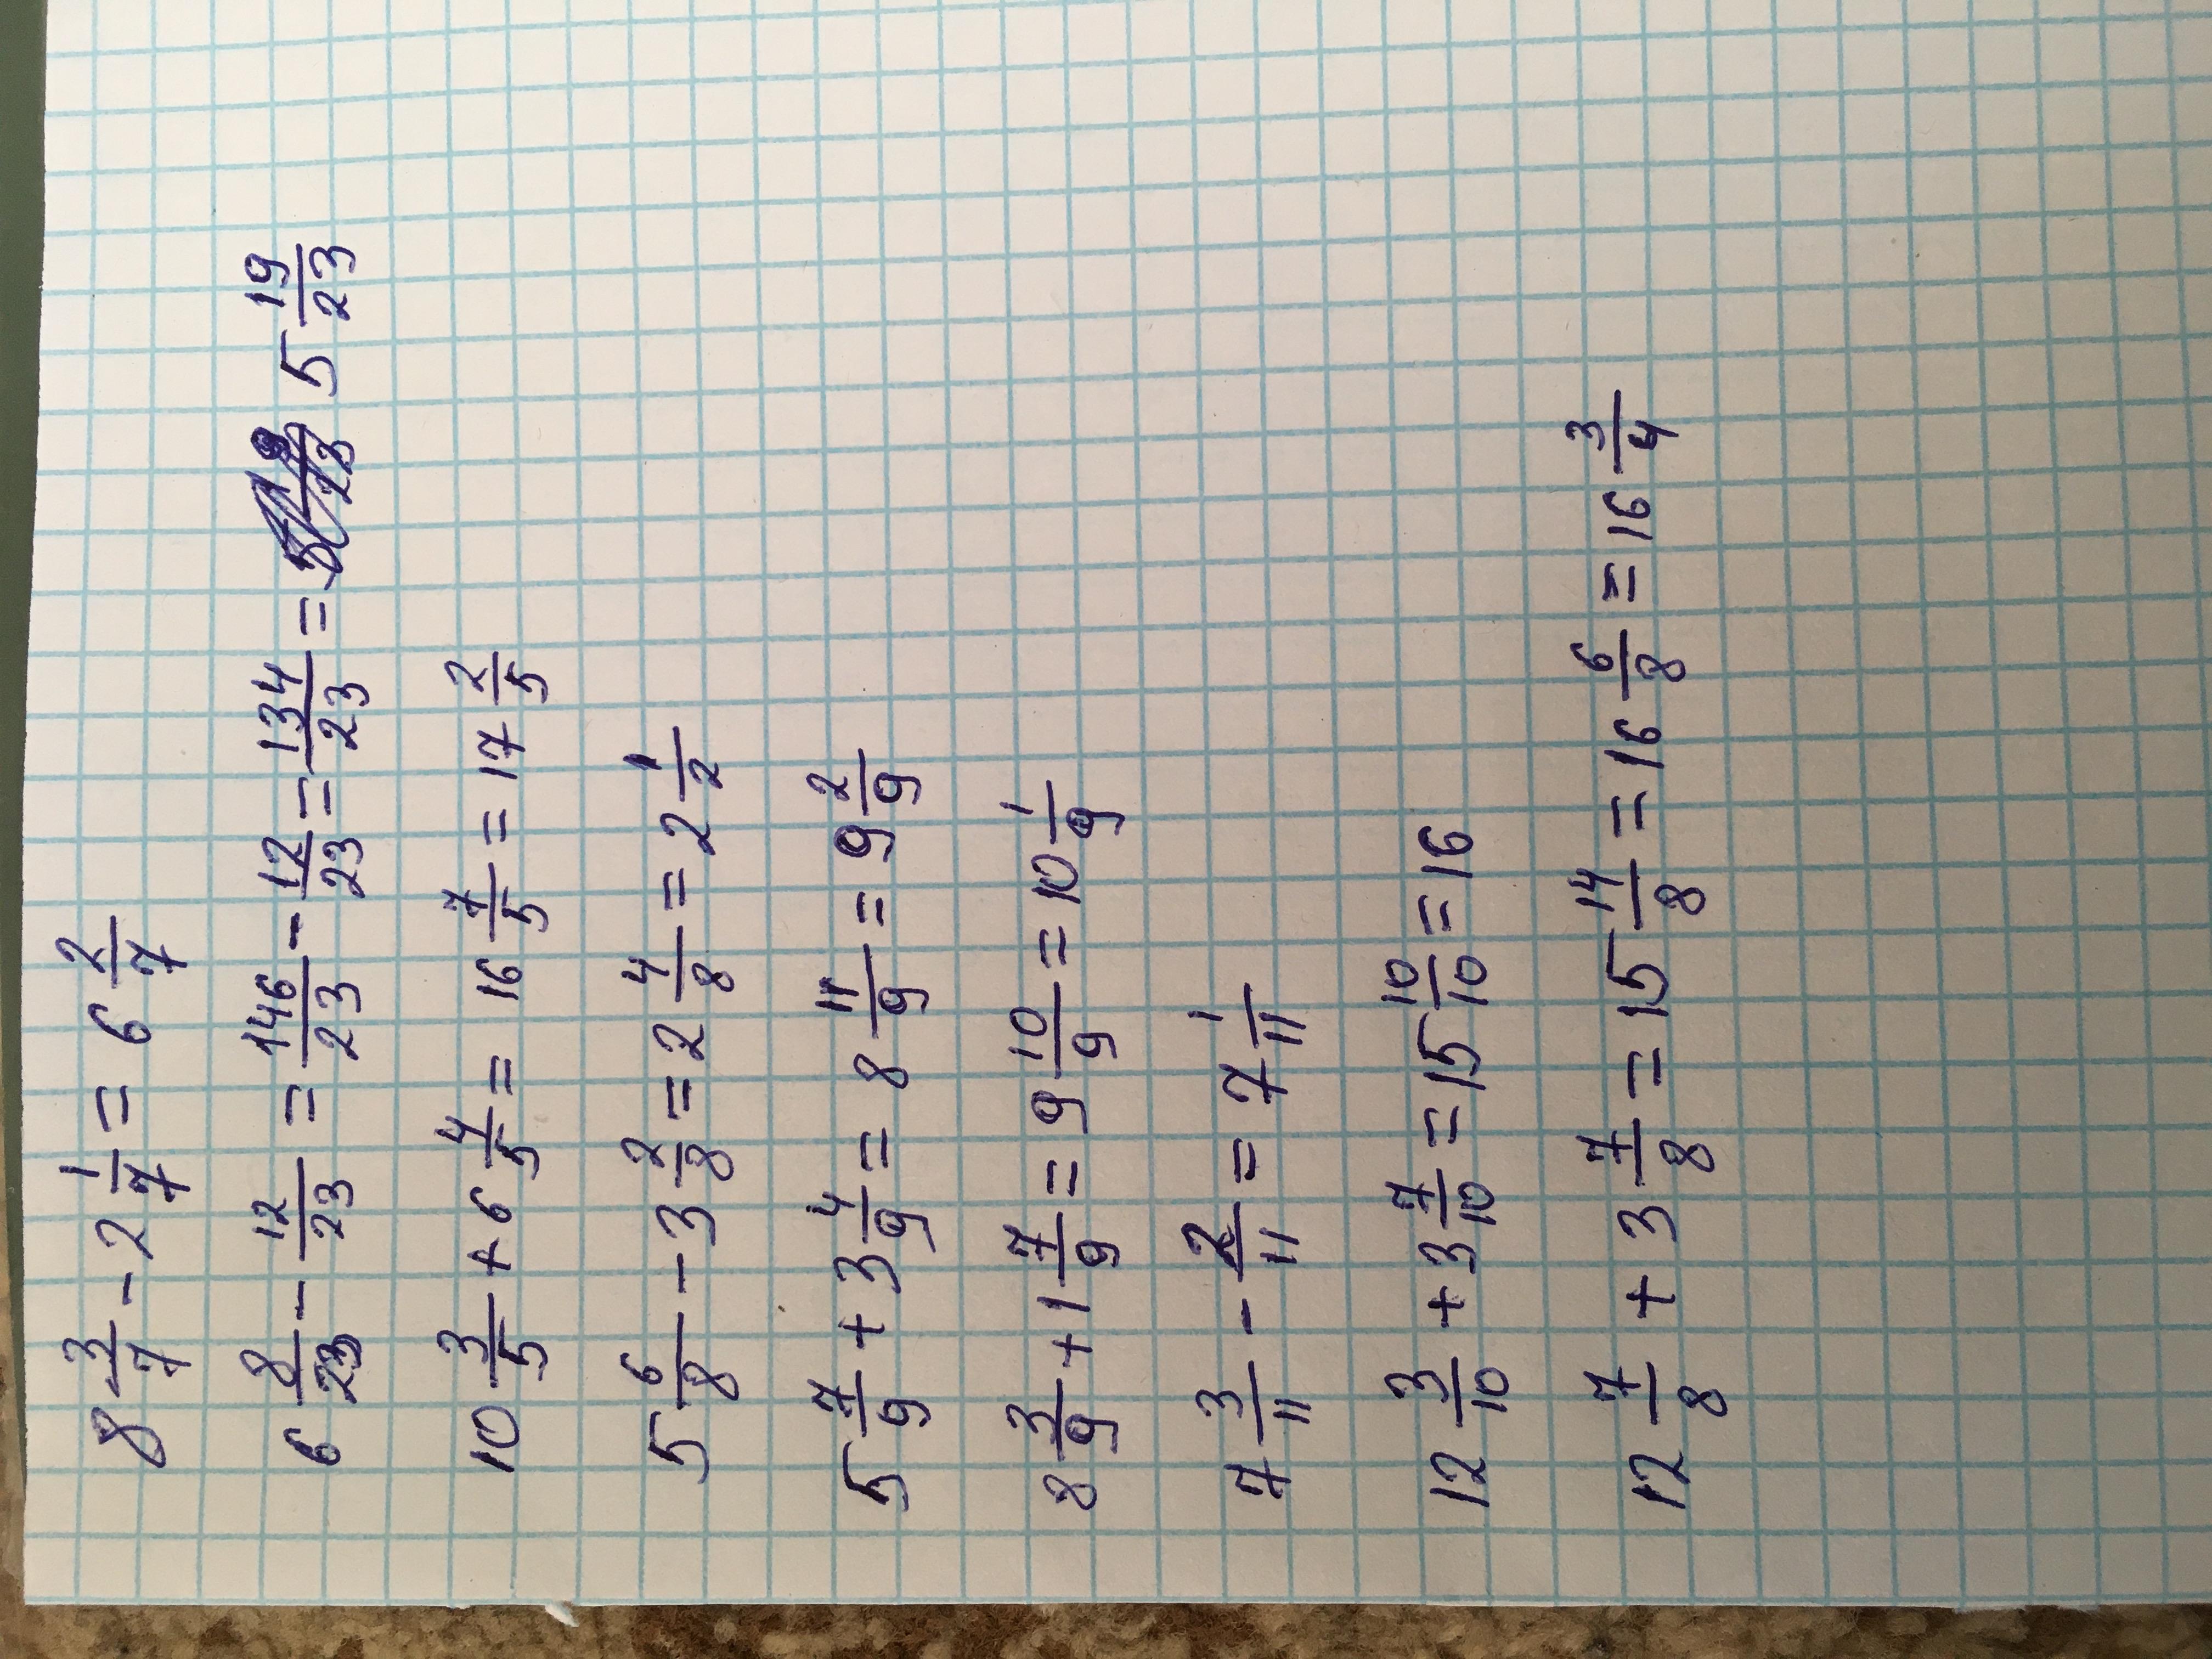 8 3/7 - 2 1/7 = 6 2/7
6 8/23 - 12/23 = 146/23 - 12/23 = 134/23 = 5 19/23
10 3/5 + 6 4/5 = 16 7/5 = 17 2/5
5 6/8 - 3 2/8 = 2 4/8 = 2 1/2
5 7/9 + 3 4/9 = 8 11/9 = 9 2/9
8 3/9 + 1 7/9 = 9 10/9 = 10 1/9
7 3/11 - 2/11 = 7 1/11
12 3/10 + 3 7/10 = 15 10/10 = 16
12 7/8 + 3 7/8 = 15 14/8 = 16 6/8 = 16 3/4